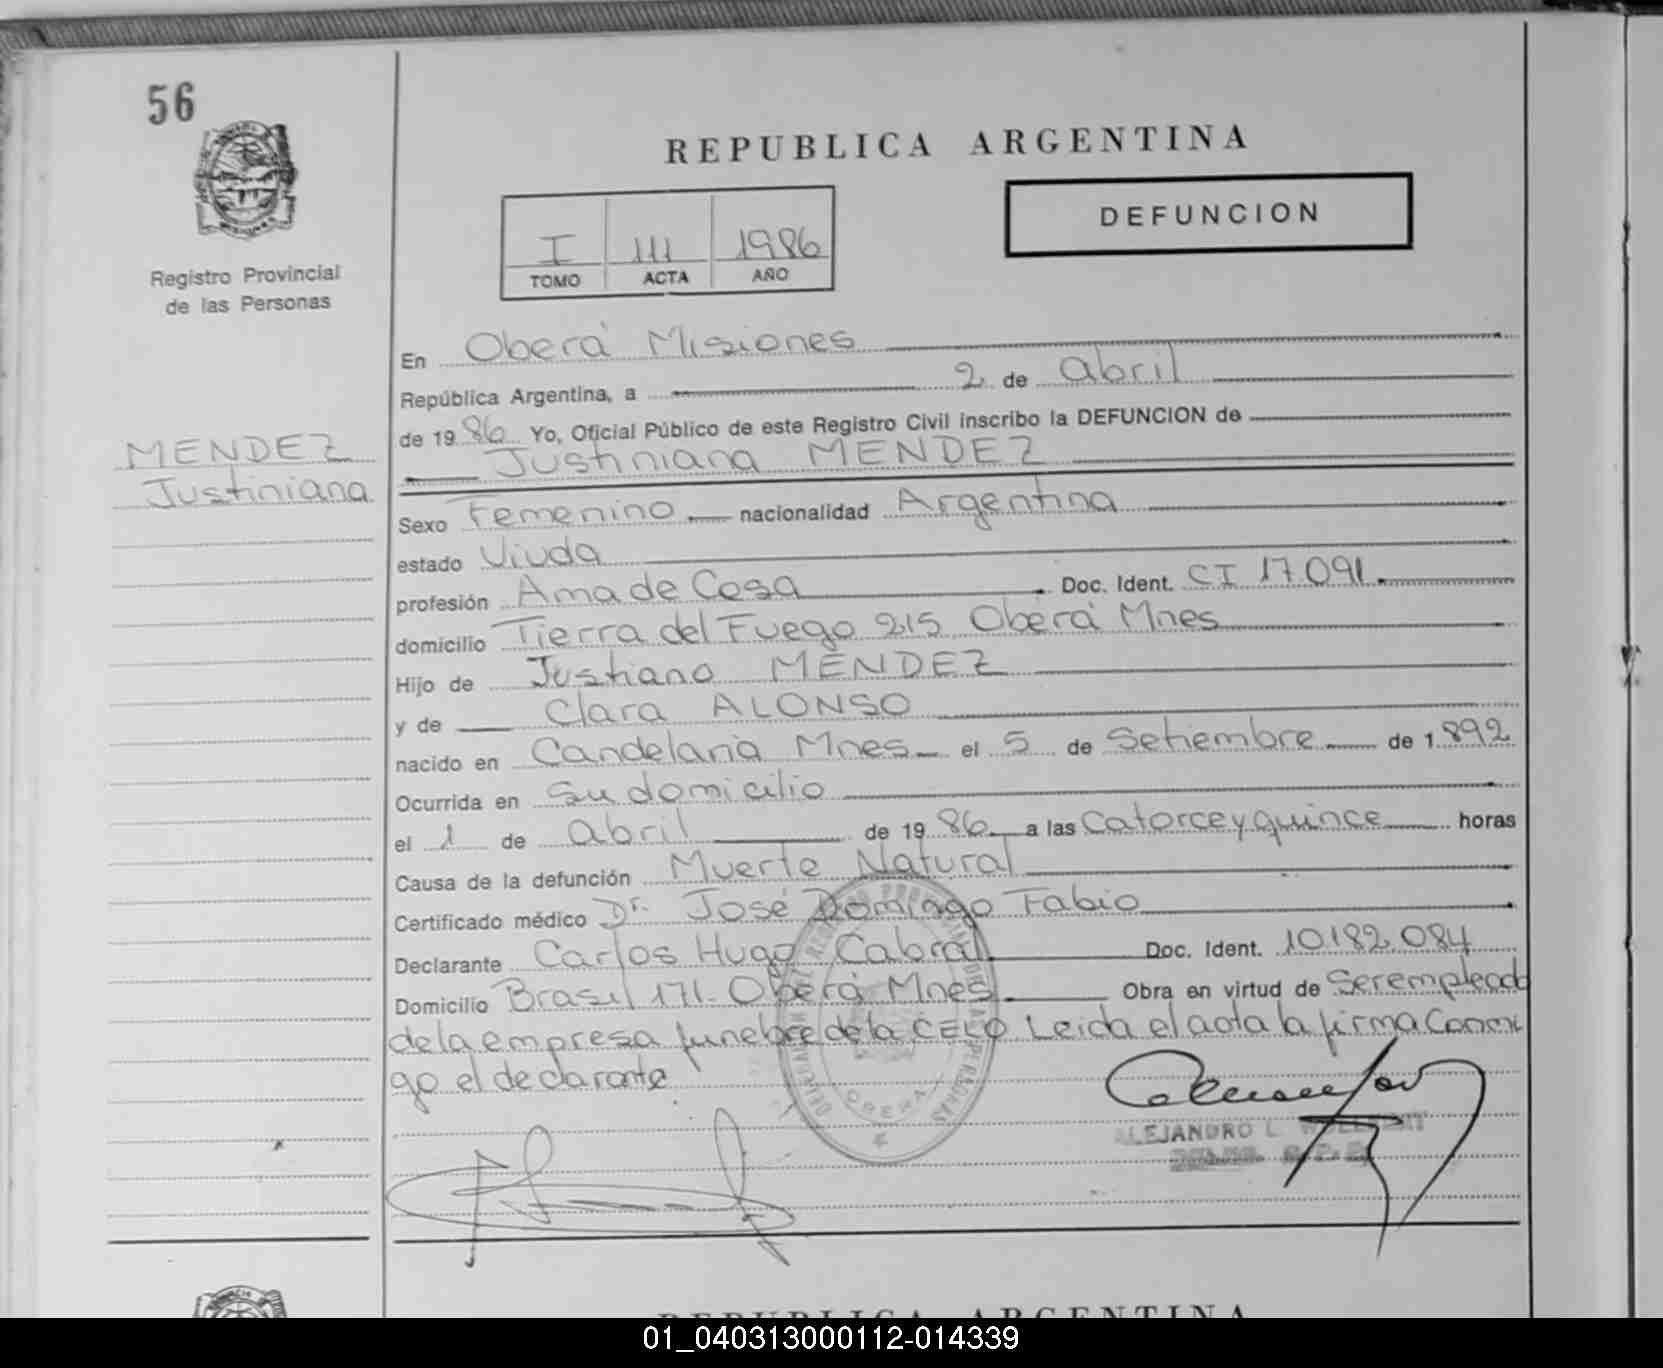 56
REPUBLICA ARGENTINA
DEFUNCION
I 111 1986
TOMO ACTA AÑO
Registro Provincial
de las Personas
MENDEZ
Justiniana
En Oberá Misiones
República Argentina, a 2 de abril
de 1986 Yo, Oficial Público de este Registro Civil inscribo la DEFUNCION de
Justiniana MENDEZ
Sexo Femenino nacionalidad Argentina
estado Viuda
profesión Ama de Casa Doc. Ident. CI 17.091.
domicilio Tierra del Fuego 215 Oberá Mnes
Hijo de Justiano MENDEZ
y de Clara ALONSO
nacido en Candelaria Mnes el 5 de Setiembre de 1.892
Ocurrida en Su domicilio
el 1 de abril de 1986 a las Catorce y quince horas
Causa de la defunción Muerte Natural
Certificado médico Dr. José Domingo Fabio
Declarante Carlos Hugo Cabral Doc. Ident. 10.182.084
Domicilio Brasil 171. Oberá Mnes Obra en virtud de Ser empleado
de la empresa funebre de la CELO Leida el acta la firma Conmi
go el declarante
OBERA
ALEJANDRO L
REPUBLICA ARGENTINA
01_040313000112-014339